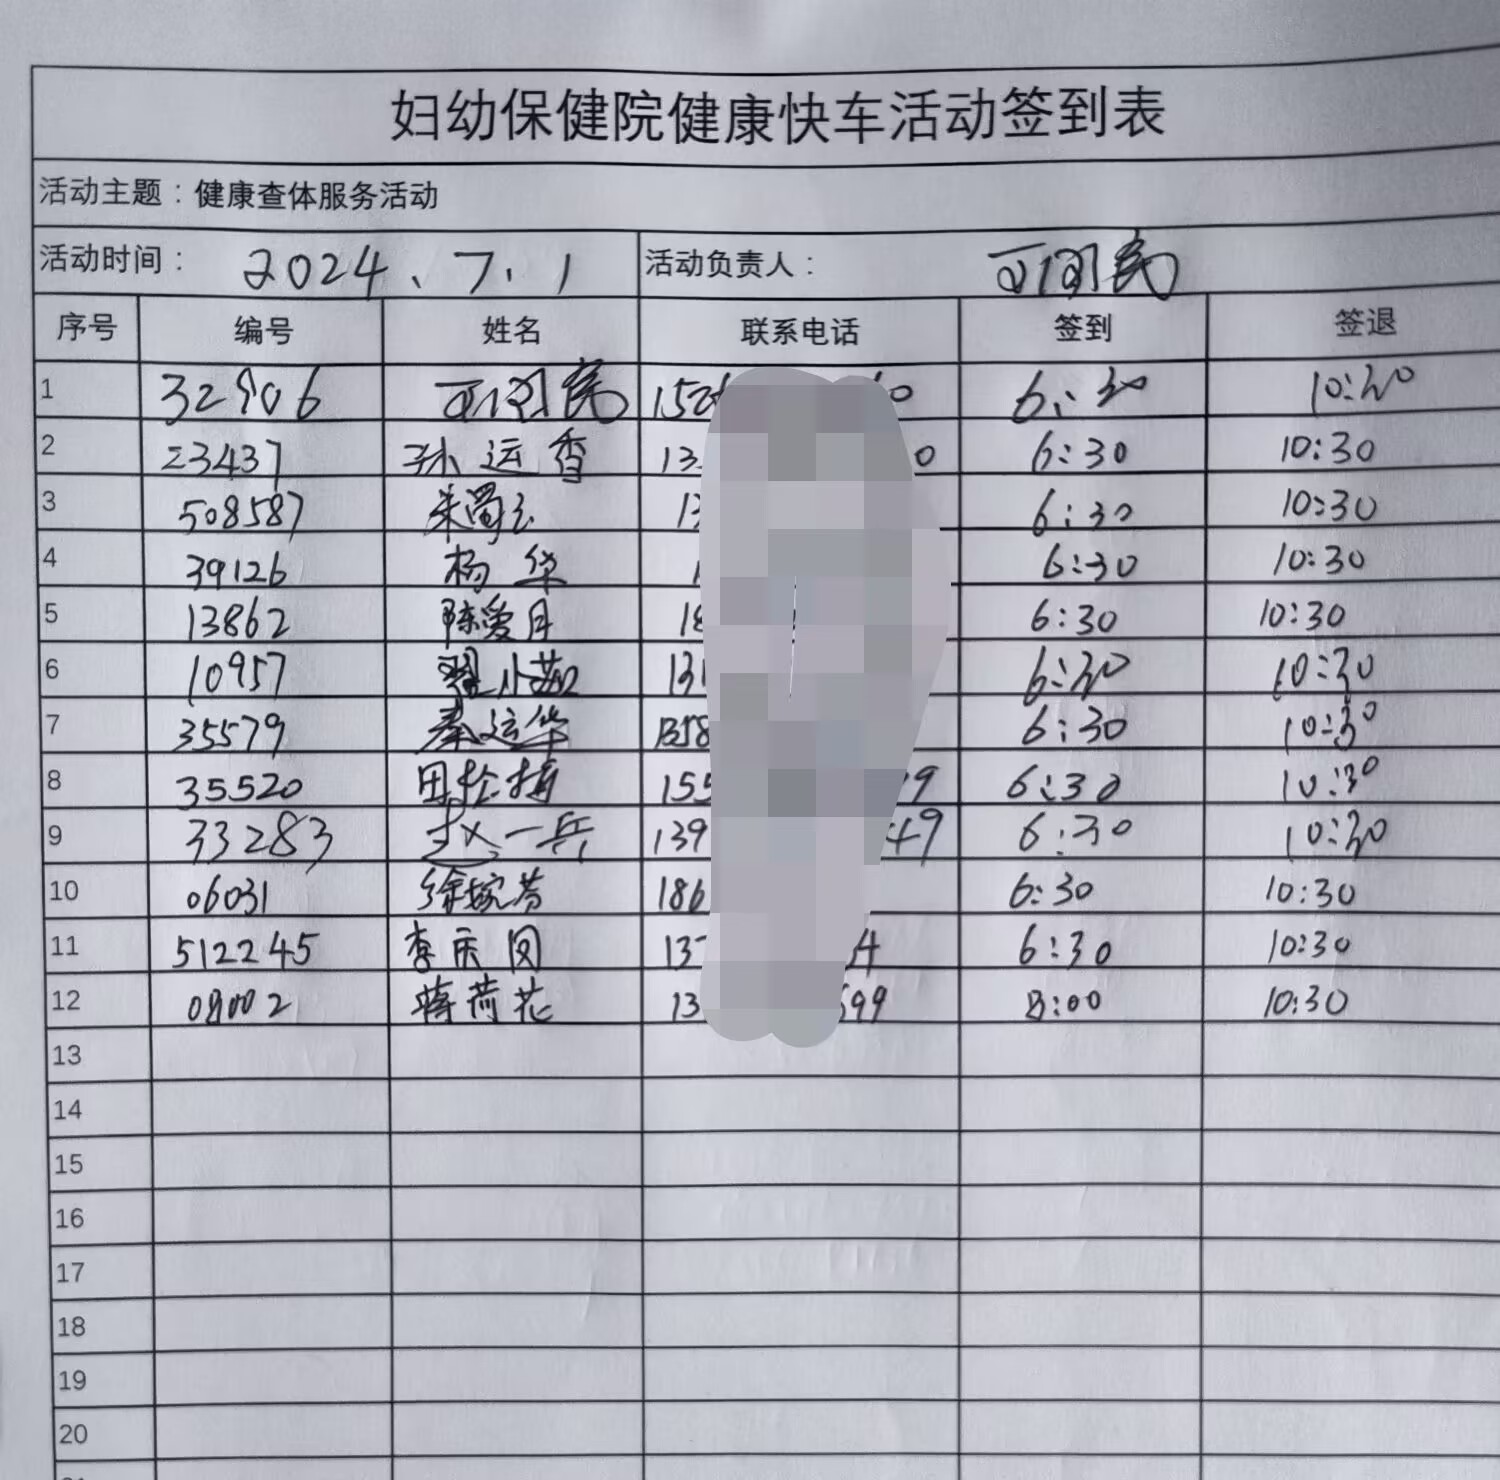 妇幼保健院健康快车活动签到表
活动主题：健康查体服务活动
活动时间： 2024.7.1 活动负责人：
序号 编号 姓名 联系电话 签到 签退
1 32906 152 0 6:30 10:30
2 23437 孙运香 13 0 6:30 10:30
3 508587 13 6:30 10:30
4 39126 杨华 1 6:30 10:30
5 13862 陈爱月 18 6:30 10:30
6 10957 131 6:30 10:30
7 35579 秦运华 1358 6:30 10:30
8 35520 155 99 6:30 10:30
9 33283 赵一兵 139 49 6:30 10:30
10 06031 徐婉芳 186 6:30 10:30
11 512245 李庆凤 137 4 6:30 10:30
12 09002 蒋荷花 13 699 8:00 10:30
13
14
15
16
17
18
19
20